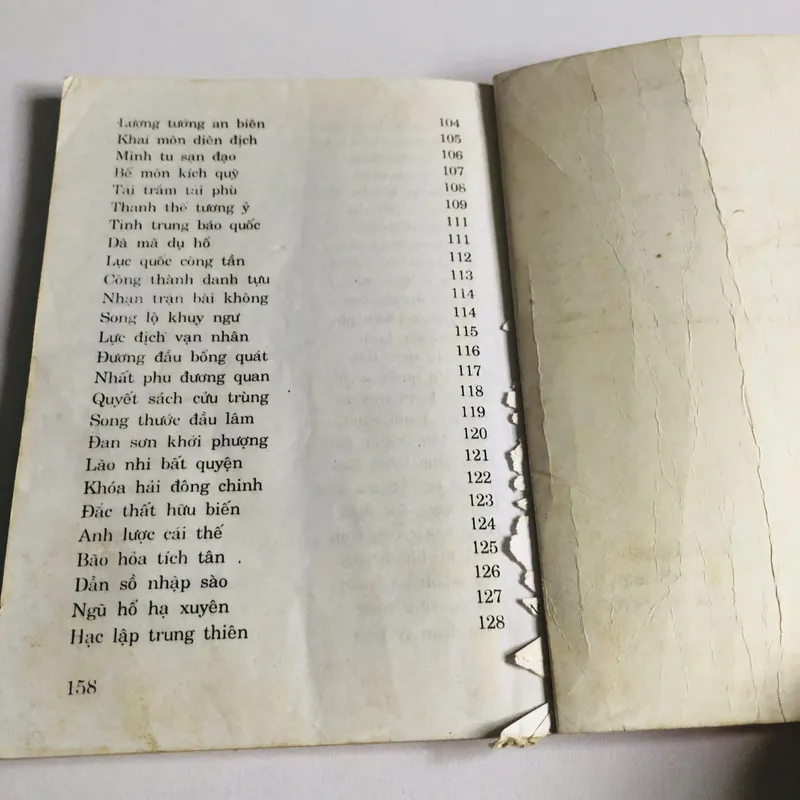 Lương tướng an biên 104
Khai môn diên địch 105
Minh tu sạn đạo 106
Bế môn kích quỹ 107
Tái trám tái phù 108
Thanh thế tương ỷ 109
Tinh trung báo quốc 111
Dã mã dụ hổ 111
Lục quốc công tần 112
Công thành danh tựu 113
Nhạn trận bài không 114
Song lộ khuy ngư 114
Lực địch vạn nhân 115
Đương đầu bổng quát 116
Nhất phu đương quan 117
Quyết sách cửu trùng 118
Song thước đầu lâm 119
Đan sơn khởi phượng 120
Lão nhi bất quyện 121
Khóa hải đông chinh 122
Đắc thất hữu biến 123
Anh lược cái thế 124
Bão hỏa tích tân . 125
Dẫn sồ nhập sào 126
Ngũ hổ hạ xuyên 127
Hạc lập trung thiên 128
158